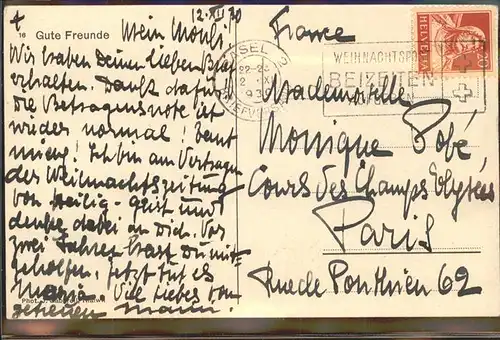 12.XII 30
France
16 Gute Freunde
Mein Mouli!
Wir haben deinen lieben Brief
erhalten. Dank dafür
die Betragensnote ist
wieder normal!
Ich bin am Vertragen
der Weihnachtszeitung
von Heilig-Geist und
denke dabei an Dich. Vor
zwei Jahren hast Du mit-
geholfen. Jetzt tut es
Maria Viel liebes von
getreuen
Phot.
BASEL 2
22-23
BRIEFVERSAND
WEIHNACHTSPO
BEIZEITEN
HELVETIA
20
Mademoiselle
Monique Bobé,
Cours des Champs Elysées
Paris
Rue de Ponthieu 62